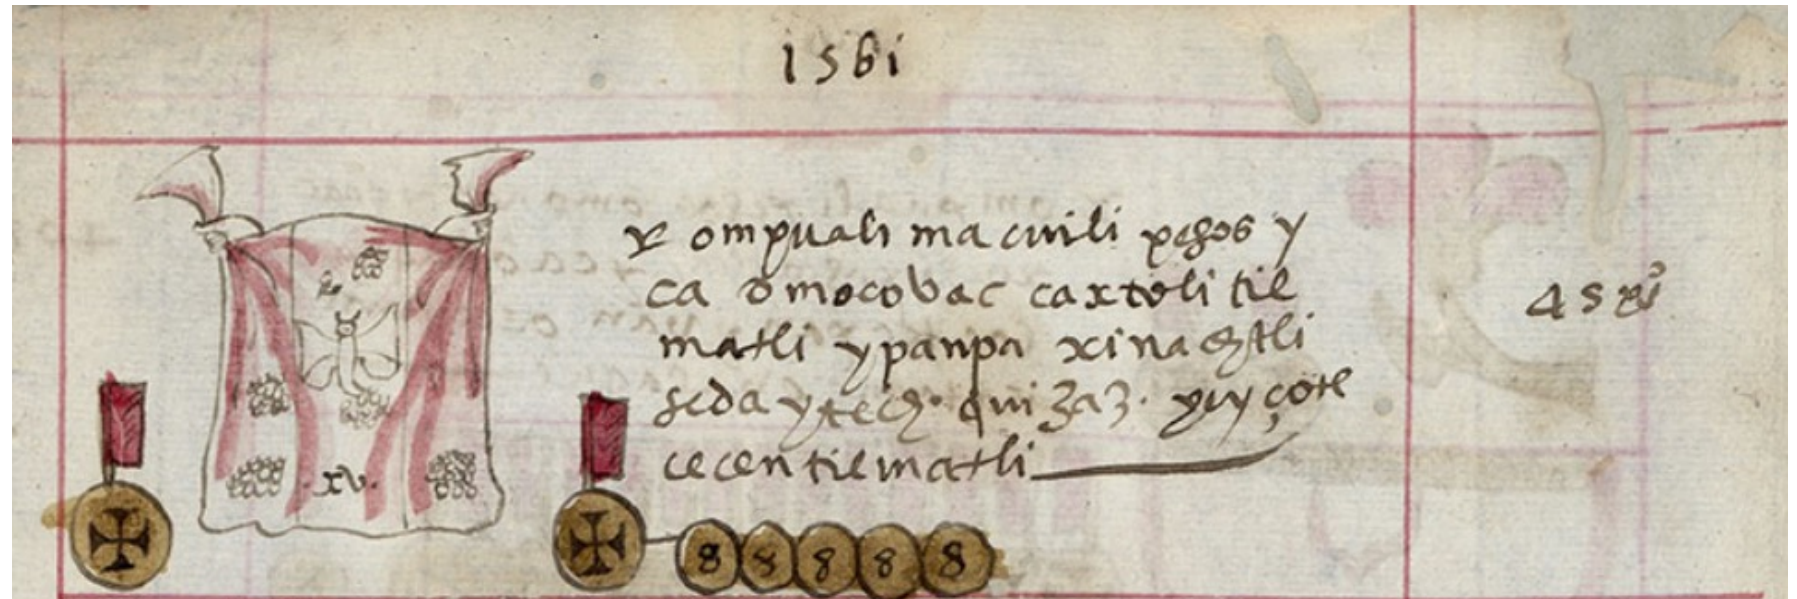 1561
y ompuali macuili pesos y
ca omocovac caxtoli til
matli ypanpa xinachtli
seda ytech quizaz
cecentilmatli
xv
8 8 8 8 8